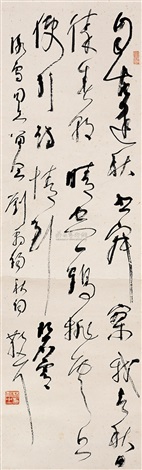 自古逢秋悲寂寥我言秋日
勝春朝晴空一鶴排雲上
便引詩情到碧霄
劉禹錫秋詞